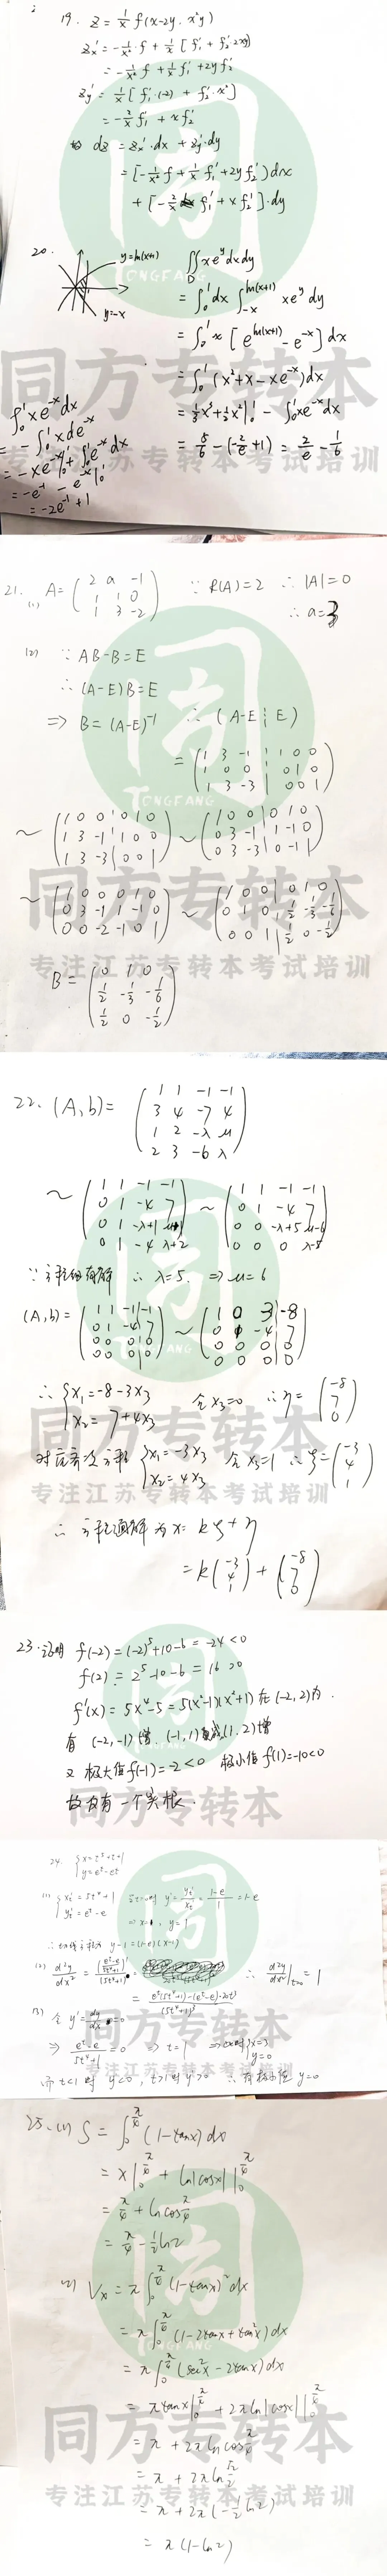 19. z = 1/x f(x-2y, x²y)
z'x = -1/x² · f + 1/x [f'₁ + f'₂·2xy]
= -1/x² f + 1/x f'₁ + 2y f'₂
z'y = 1/x [f'₁·(-2) + f'₂·x²]
= -2/x f'₁ + x f'₂
dz = z'x·dx + z'y·dy
= [-1/x² f + 1/x f'₁ + 2y f'₂] dx
+ [-2/x f'₁ + x f'₂]·dy
20.
y=ln(x+1)
y=-x
∬_D x e^y dx dy
= ∫₀¹ dx ∫_{-x}^{ln(x+1)} x e^y dy
= ∫₀¹ x [e^{ln(x+1)} - e^{-x}] dx
= ∫₀¹ (x²+x-xe^{-x}) dx
= 1/3 x³ + 1/2 x² |₀¹ - ∫₀¹ xe^{-x} dx
= 5/6 - (-2/e + 1) = 2/e - 1/6
∫₀¹ xe^{-x} dx
= -∫₀¹ x de^{-x}
= -xe^{-x}|₀¹ + ∫₀¹ e^{-x} dx
= -e^{-1} - e^{-x}|₀¹
= -2e^{-1} + 1
21. (1) A = (2 a -1
1 1 0
1 3 -2)
∵ R(A)=2 ∴ |A|=0
∴ a=3
(2) ∵ AB-B=E
∴ (A-E)B=E
⇒ B=(A-E)^{-1} ∴ (A-E ┆ E)
= (1 3 -1 | 1 0 0
1 0 0 | 0 1 0
1 3 -3 | 0 0 1)
~ (1 0 0 | 0 1 0
1 3 -1 | 1 0 0
1 3 -3 | 0 0 1)
~ (1 0 0 | 0 1 0
0 3 -1 | 1 -1 0
0 3 -3 | 0 -1 1)
~ (1 0 0 0 1 0
0 3 -1 1 -1 0
0 0 -2 -1 0 1)
~ (1 0 0 | 0 1 0
0 1 0 | 1/2 -1/3 -1/6
0 0 1 | 1/2 0 -1/2)
B = (0 1 0
1/2 -1/3 -1/6
1/2 0 -1/2)
22. (A,b) = (1 1 -1 -1
3 4 -7 4
1 2 -λ μ
2 3 -6 λ)
~ (1 1 -1 -1
0 1 -4 7
0 1 -λ+1 μ+1
0 1 -4 λ+2)
~ (1 1 -1 -1
0 1 -4 7
0 0 -λ+5 μ-6
0 0 0 λ-5)
∵ 方程组有解 ∴ λ=5. ⇒ μ=6
(A,b) = (1 1 -1 | -1
0 1 -4 | 7
0 0 0 | 0
0 0 0 | 0)
~ (1 0 3 | -8
0 1 -4 | 7
0 0 0 | 0
0 0 0 | 0)
∴ {x₁ = -8-3x₃
x₂ = 7+4x₃
令 x₃=0 ∴ η = (-8
7
0)
对应齐次方程 {x₁ = -3x₃
x₂ = 4x₃
令 x₃=1 ∴ ξ = (-3
4
1)
∴ 方程通解为 x = kξ + η
= k(-3
4
1) + (-8
7
0)
23. 证明 f(-2) = (-2)⁵+10-6 = -24 < 0
f(2) = 2⁵-10-6 = 16 > 0
f'(x) = 5x⁴-5 = 5(x²-1)(x²+1) 在 (-2,2)内.
有 (-2,-1)增. (-1,1)减 (1,2)增
又 极大值 f(-1)=-2<0 极小值 f(1)=-10<0
故只有一个实根.
24. {x = t⁵+t+1
y = e^t-et
(1) {x't = 5t⁴+1
y't = e^t-e
当t=0时 y' = y't/x't = (1-e)/1 = 1-e
x=1, y=1
∴ 切线方程为 y-1=(1-e)(x-1)
(2) d²y/dx² = ((e^t-e)/(5t⁴+1))'
= (e^t(5t⁴+1)-(e^t-e)·20t³)/(5t⁴+1)³
∴ d²y/dx²|_{t=0} = 1
(3) 令 y' = dy/dx = 0
⇒ (e^t-e)/(5t⁴+1) = 0 ⇒ t=1 ⇒ {x=3
y=0
而 t<1时 y'<0, t>1时 y'>0 ∴ 有极小值 y=0
25. (1) S = ∫₀^{π/4} (1-tanx) dx
= x|₀^{π/4} + ln|cosx| |₀^{π/4}
= π/4 + ln cos π/4
= π/4 - 1/2 ln2
(2) Vx = π∫₀^{π/4} (1-tanx)² dx
= π∫₀^{π/4} (1-2tanx+tan²x) dx
= π∫₀^{π/4} (sec²x-2tanx) dx
= π tanx|₀^{π/4} + 2π ln|cosx| |₀^{π/4}
= π + 2π ln cos π/4
= π + 2π ln √2/2
= π + 2π(-1/2 ln2)
= π(1-ln2)
同
TONGFANG
同方专转本
专注江苏专转本考试培训